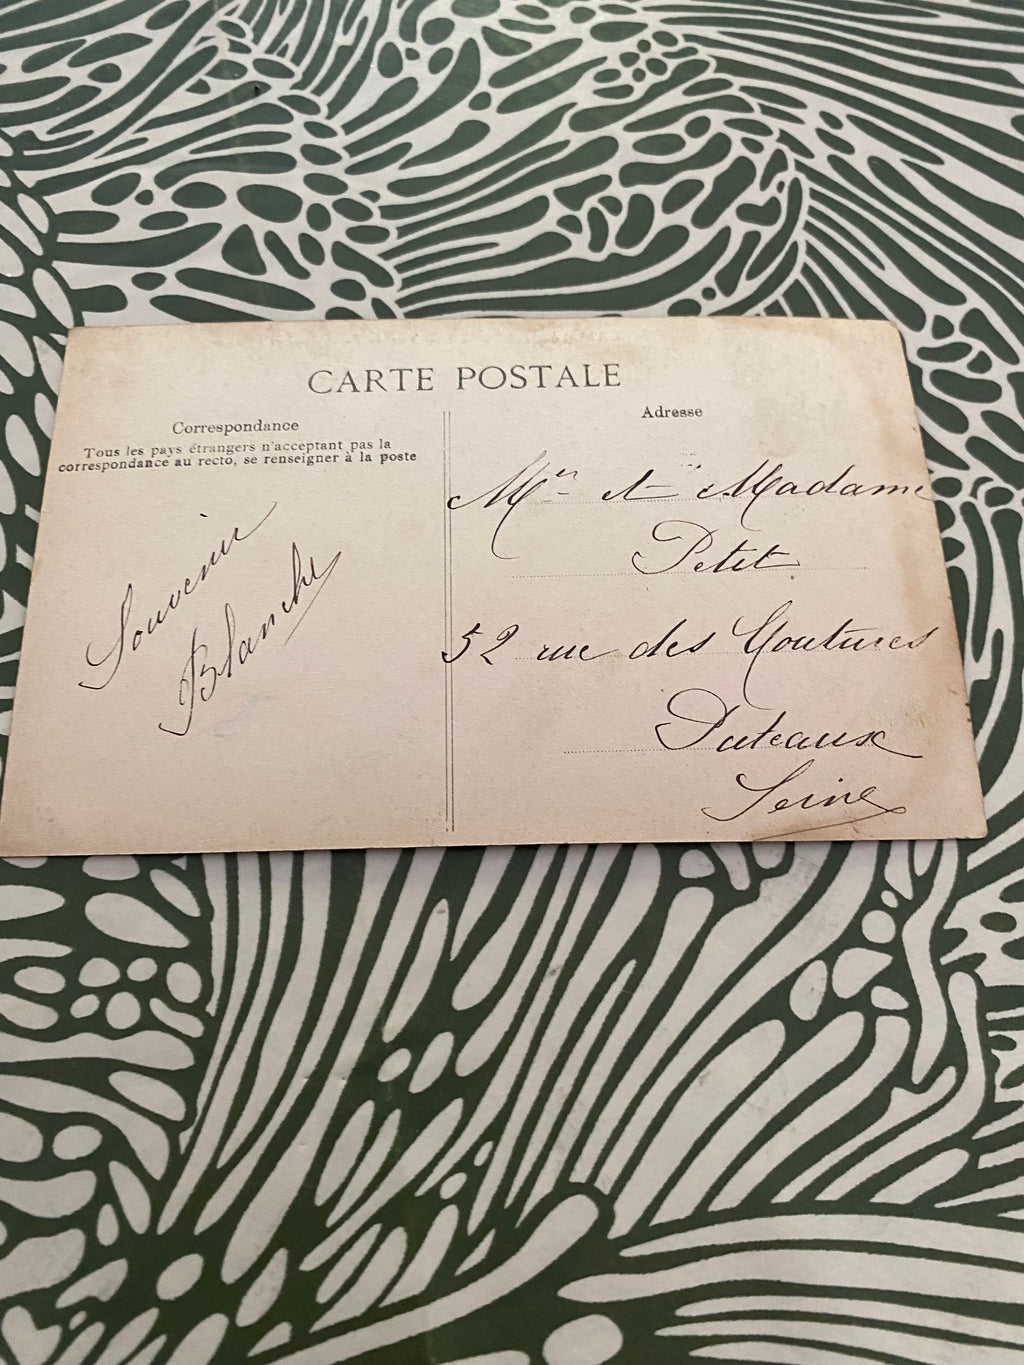 CARTE POSTALE
Correspondance
Tous les pays étrangers n'acceptant pas la
correspondance au recto, se renseigner à la poste
Souvenir
Blanche
Adresse
Mr et Madame
Petit
52 rue des Coutures
Puteaux
Seine